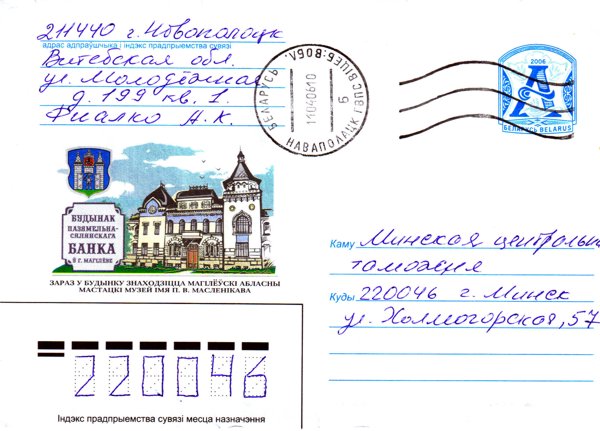 211440 г. Новополоцк
адрас адпраўшчыка і індэкс прадпрыемства сувязі
Витебская обл.
ул. Молодёжная
д. 199 кв. 1.
Фиалко А. К.
БЕЛАРУСЬ
НАВАПОЛАЦК
110406 10
Б
2006
А
БЕЛАРУСЬ BELARUS
БУДЫНАК
ПАЗЯМЕЛЬНА-
СЯЛЯНСКАГА
БАНКА
В Г. МАГІЛЁВЕ
ЗАРАЗ У БУДЫНКУ ЗНАХОДЗІЦЦА МАГІЛЁЎСКІ АБЛАСНЫ
МАСТАЦКІ МУЗЕЙ ІМЯ П. В. МАСЛЕНІКАВА
Каму Минская центральна
таможня
Куды 220046 г. Минск
ул. Холмогорская, 57
220046
Індэкс прадпрыемства сувязі месца назначэння